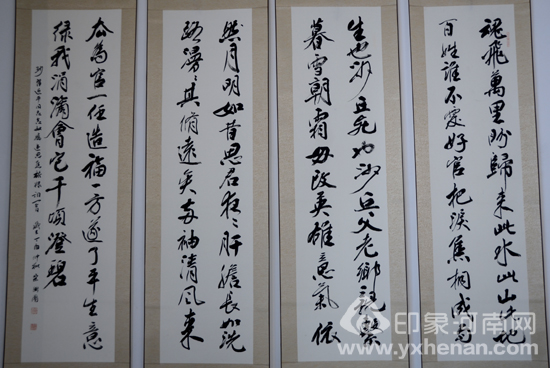 魂飛萬里盼歸來此水此山此地
百姓誰不愛好官把淚焦桐成雨
生也沙丘死也沙丘父老鄉親繫
暮雪朝霜毋改英雄意氣依
然月明如昔思君夜々肝膽長如洗
路漫々其脩遠矣兩袖清風來
去為官一任造福一方遂了平生意
綠我涓滴會它千頃澄碧
印象河南网
www.yxhenan.com